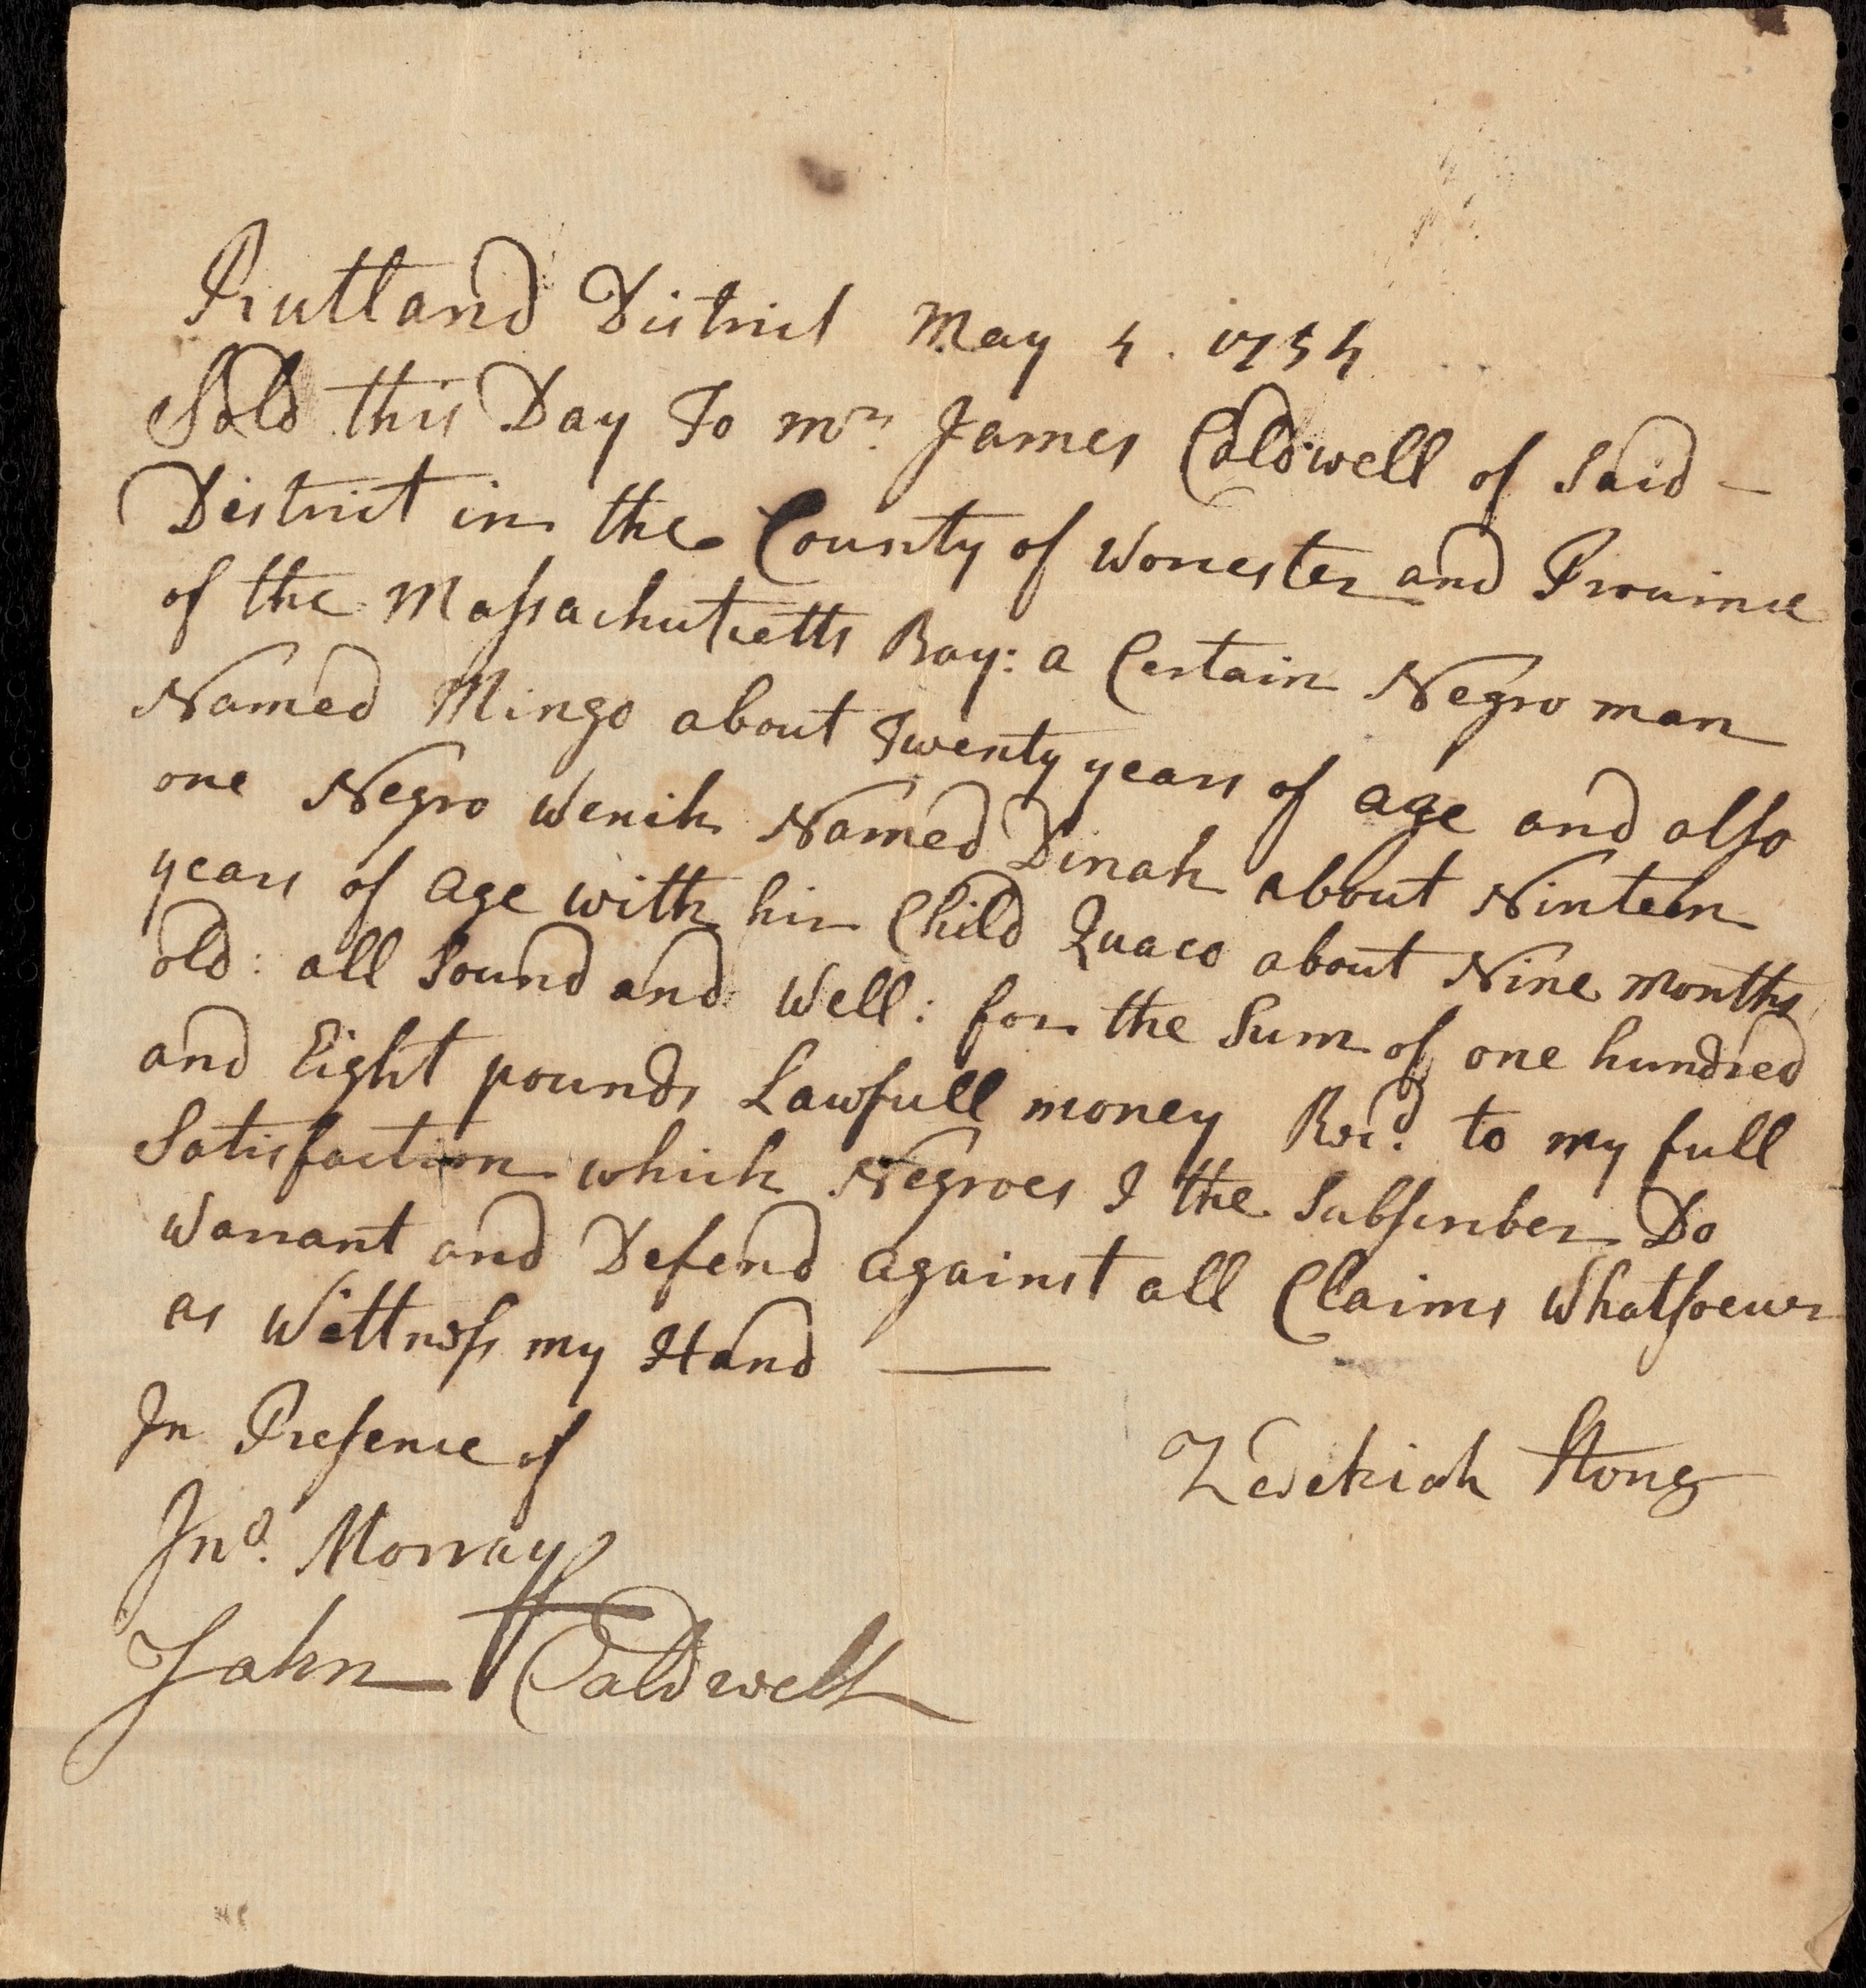 Rutland District May 4. 1754
Sold this Day To mr. James Caldwell of Said –
District in the County of Worcester and Province
of the Massachutsetts Bay: a Certain Negro man
Named Mingo about Twenty years of age and also
one Negro Wench Named Dinah about Ninteen
years of age with hir Child Quaco about Nine months
old: all Sound and Well: for the Sum of one hundred
and Eight pounds Lawfull money Recd. to my full
Satisfaction which Negroes I the Subscriber Do
Warrant and Defend against all Claims Whatsoever
as Wittness my Hand —
In Presence of
Zedekiah Stone
Jno. Morray
John Caldwell